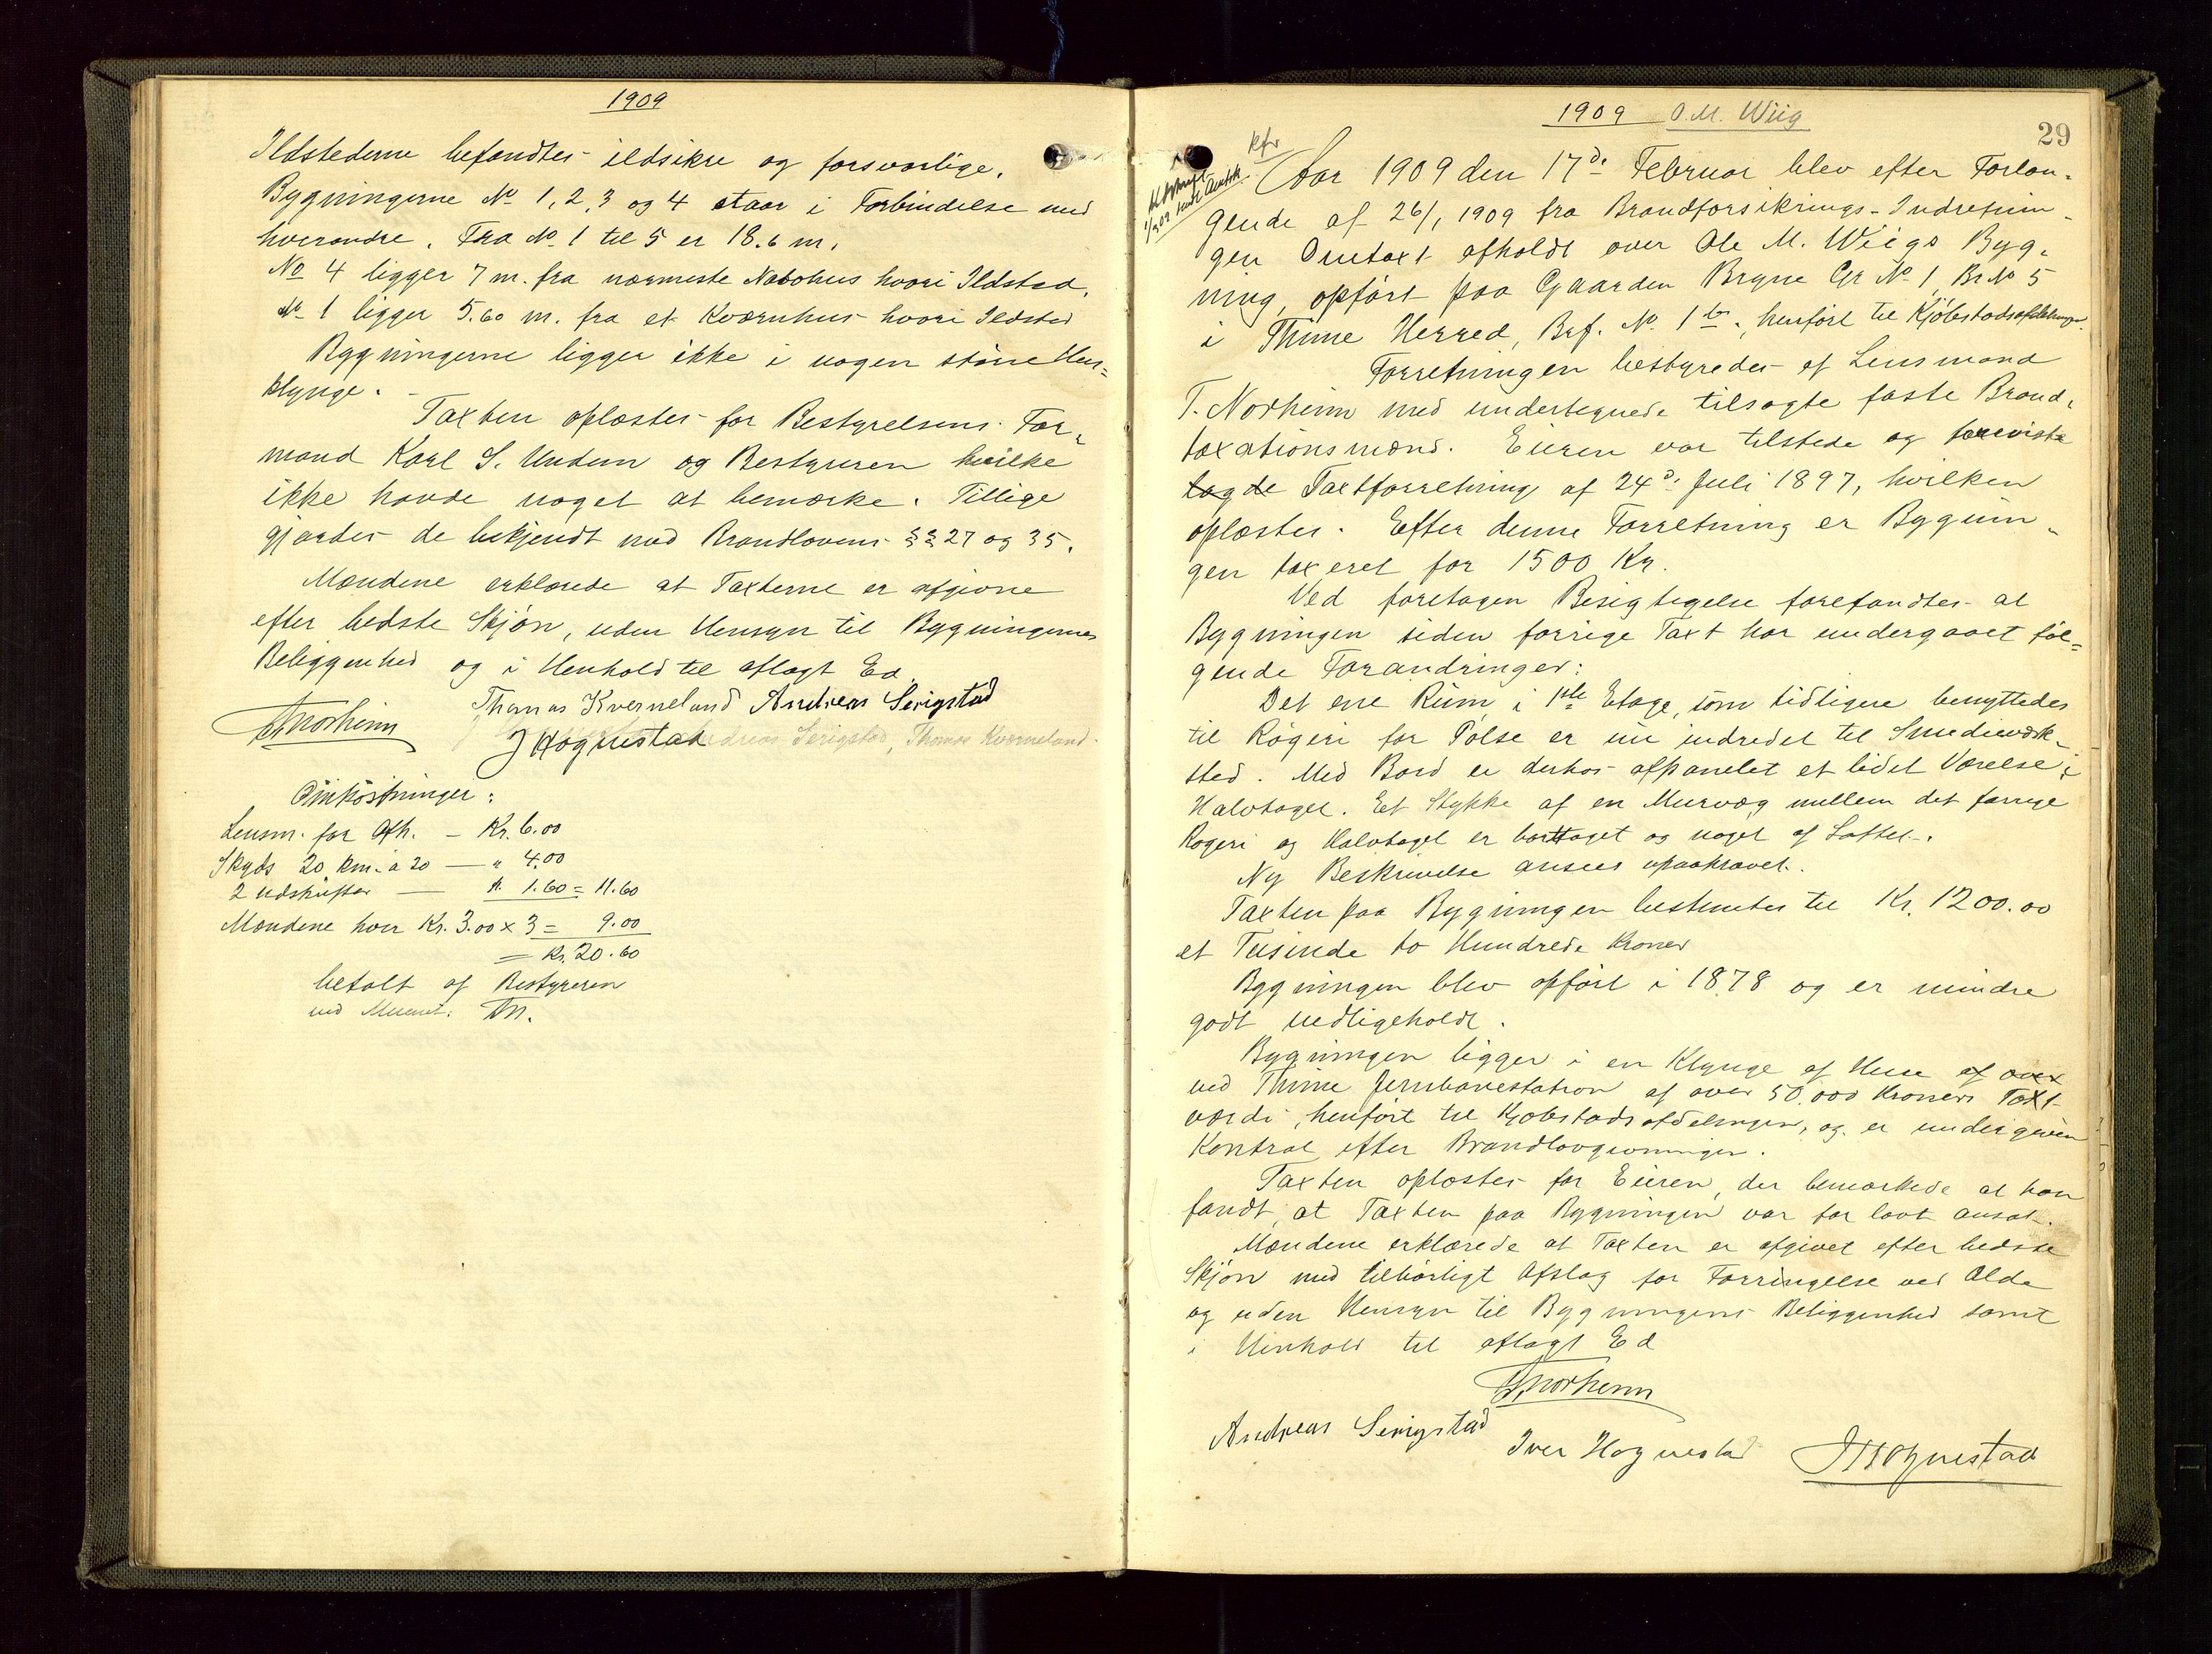 1909
Ildstederne befandtes ildsikre og forsvarlige.
Bygningerne No 1, 2, 3 og 4 staar i Forbindelse med
hverandre. Fra No 1 til 5 er 18.6 m.
No 4 ligger 7 m. fra nærmeste Nabohus hvori Ildsted.
No 1 ligger 5.60 m. fra et Kværnhus hvori Ildsted
Bygningerne ligger ikke i nogen större Hus=
klynge.
Taxten oplæstes for Bestyrelsens For-
mand Karl S. Undem og Bestyreren hvilke
ikke havde noget at bemærke. Tillige
gjordes de bekjendt med Brandlovens §§ 27 og 35.
Mændene erklærede at Taxterne er afgivne
efter bedste Skjön, uden Hensyn til Bygningernes
Beliggenhed og i Henhold til aflagt Ed.
Thomas Kverneland Andreas Serigstad
TNorheim J Hognestad Andreas Serigstad, Thomas Kverneland
Omkostninger:
Lensm. for Afh. — Kr. 6.00
Skyds 20 km. à 20 — " 4.00
2 Udskrifter — " 1.60 = 11.60
Mændene hver Kr. 3.00 x 3 = 9.00
= Kr. 20.60
betalt af Bestyreren
TN.
1909 O. M. Wiig
29
Kfr
Aar 1909 den 17de Februar blev efter Forlan-
gende af 26/1 1909 fra Brandforsikrings-Indretnin-
gen Omtaxt afholdt over Ole M. Wiigs Byg-
ning, opfört paa Gaarden Bryne Gr No 1 Br No 5
i Thime Herred, Brf. No 1 , henfört til Kjöbstadsafdelingen.
Forretningen bestyredes af Lensmand
T. Norheim med undertegnede tilsagte faste Brand-
taxationsmænd. Eieren var tilstede og foreviste
lagde Taxtforretning af 24de Juli 1897, hvilken
oplæstes. Efter denne Forretning er Bygnin-
gen taxeret for 1500 Kr.
Ved foretagen Besigtigelse forefandtes at
Bygningen siden forrige Taxt har undergaaet föl=
gende Forandringer:
Det ene Rum i 1ste Etage, som tidligere benyttedes
til Rögeri for Pölse er nu indredet til Smedieværk-
sted. Med Bord er derhos afpanelet et lidet Værelse i
Halvtaget. Et Stykke af en Murvæg mellem det forrige
Rögeri og Halvtaget er borttaget og noget af Loftet.
Ny Beskrivelse ansees upaakrævet.
Taxten paa Bygningen bestemtes til Kr. 1200.00
et Tusinde to Hundrede Kroner
Bygningen blev opfört i 1878 og er mindre
godt vedligeholdt.
Bygningen ligger i en Klynge af Huse af over
ved Thime Jernbanestation af over 50.000 Kroners Taxt-
værdi, henfört til Kjöbstadsafdelingen, og er undergiven
Kontrol efter Brandlovgivningen.
Taxten oplæstes for Eieren, der bemærkede at han
fandt, at Taxten paa Bygningen var for lavt ansat.
Mændene erklærede at Taxten er afgivet efter bedste
Skjön med tilbörligt Afslag for Forringelse ved Ælde
og uden Hensyn til Bygningens Beliggenhed samt
i Henhold til aflagt Ed
TNorheim
Andreas Serigstad Iver Hognestad J Hognestad